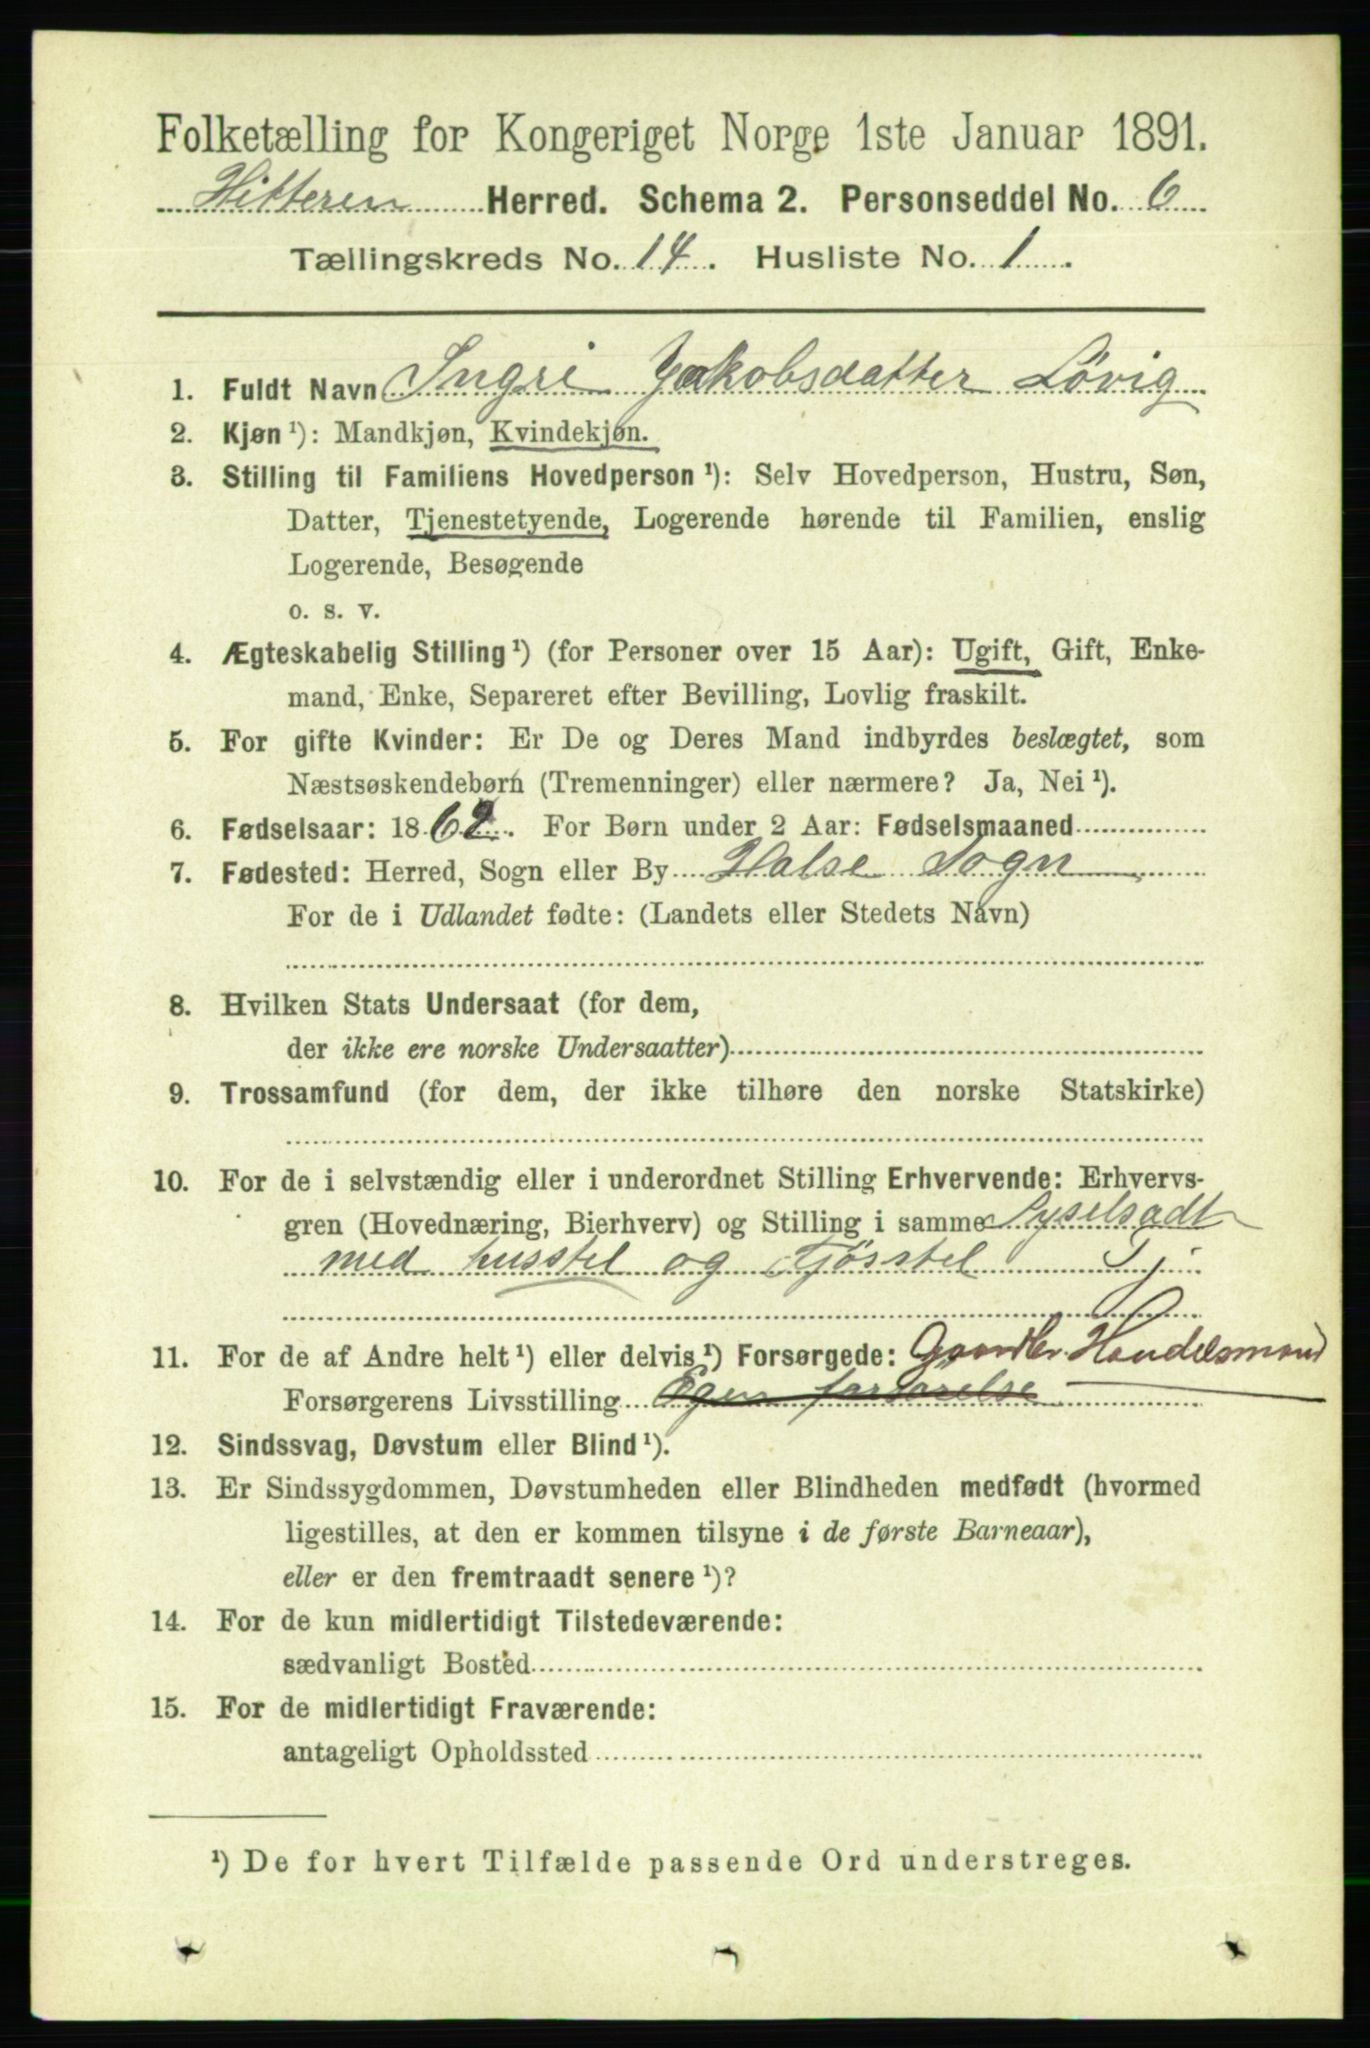 Folketælling for Kongeriget Norge 1ste Januar 1891.
Hitteren Herred. Schema 2. Personseddel No. 6
Tællingskreds No. 14. Husliste No. 1.
1. Fuldt Navn Ingri Jakobsdatter Løvig
2. Kjøn ¹): Mandkjøn, Kvindekjøn.
3. Stilling til Familiens Hovedperson ¹): Selv Hovedperson, Hustru, Søn,
Datter, Tjenestetyende, Logerende hørende til Familien, enslig
Logerende, Besøgende
o. s. v.
4. Ægteskabelig Stilling ¹) (for Personer over 15 Aar): Ugift, Gift, Enke-
mand, Enke, Separeret efter Bevilling, Lovlig fraskilt.
5. For gifte Kvinder: Er De og Deres Mand indbyrdes beslægtet, som
Næstsøskendebørn (Tremenninger) eller nærmere? Ja, Nei ¹).
6. Fødselsaar: 1862. For Børn under 2 Aar: Fødselsmaaned
7. Fødested: Herred, Sogn eller By Halse Sogn
For de i Udlandet fødte: (Landets eller Stedets Navn)
8. Hvilken Stats Undersaat (for dem,
der ikke ere norske Undersaatter)
9. Trossamfund (for dem, der ikke tilhøre den norske Statskirke)
10. For de i selvstændig eller i underordnet Stilling Erhvervende: Erhvervs-
gren (Hovednæring, Bierhverv) og Stilling i samme Syselsadt
med husstel og fjøsstel Tj
11. For de af Andre helt ¹) eller delvis ¹) Forsørgede: Gaardbr. Handelsmand
Forsørgerens Livsstilling Egen forsørelse
12. Sindssvag, Døvstum eller Blind ¹).
13. Er Sindssygdommen, Døvstumheden eller Blindheden medfødt (hvormed
ligestilles, at den er kommen tilsyne i de første Barneaar),
eller er den fremtraadt senere ¹)?
14. For de kun midlertidigt Tilstedeværende:
sædvanligt Bosted
15. For de midlertidigt Fraværende:
antageligt Opholdssted
¹) De for hvert Tilfælde passende Ord understreges.